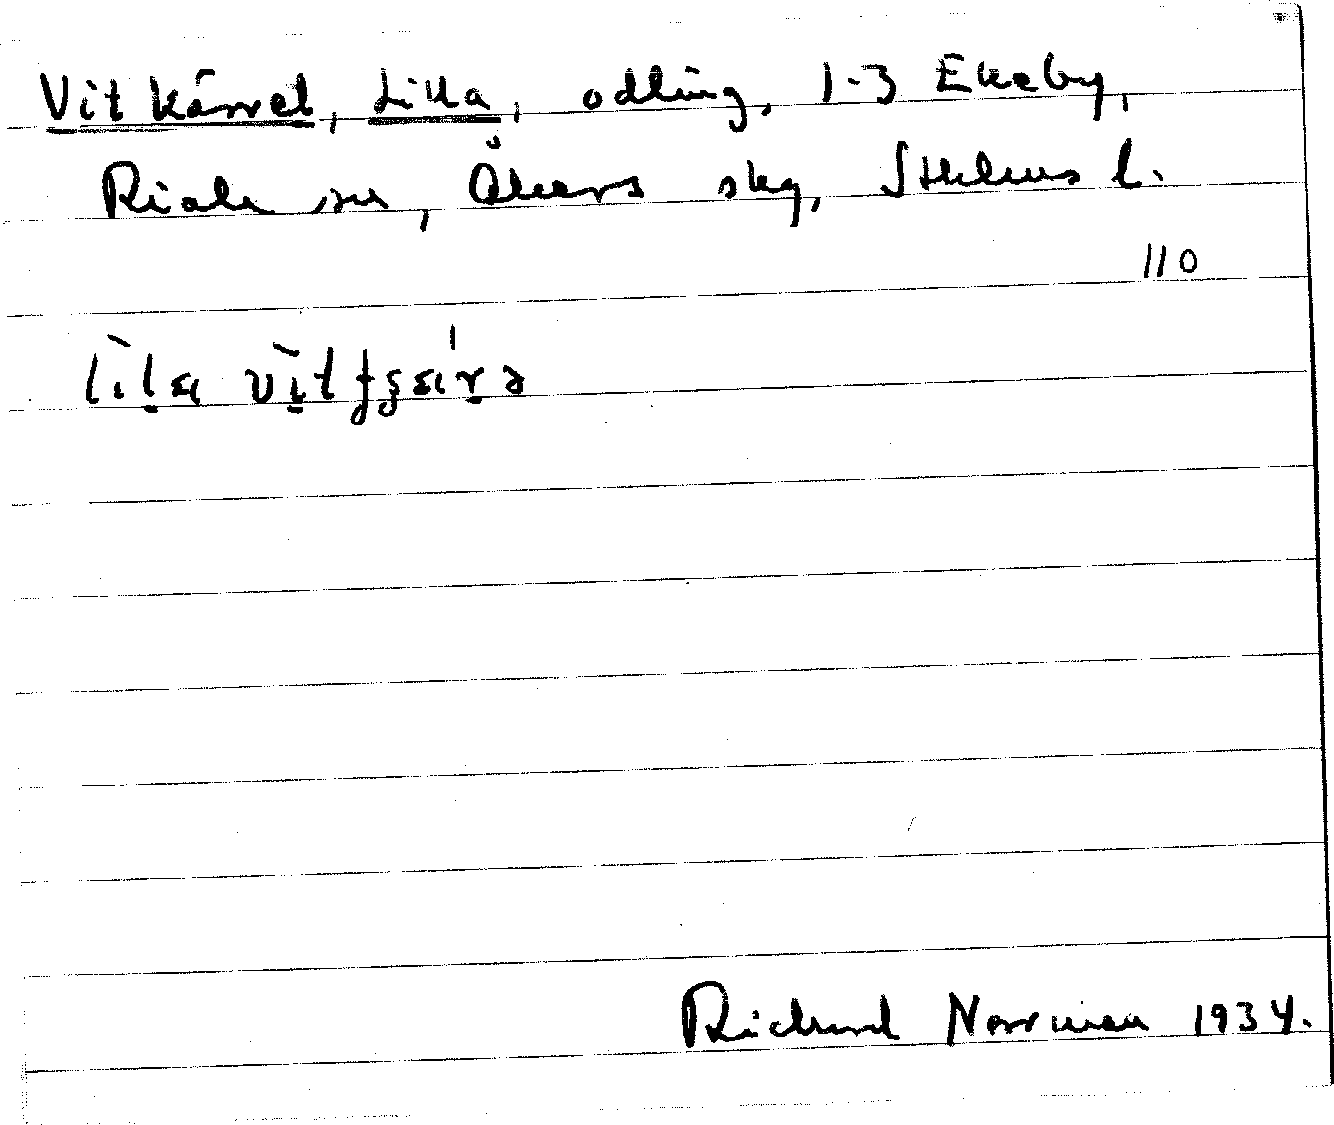 Vitkärret, Lilla, odling, 1-3 Ekeby,
Riala sn, Åkers skg, Sthlms l.
110
Richard Norrman 1934.